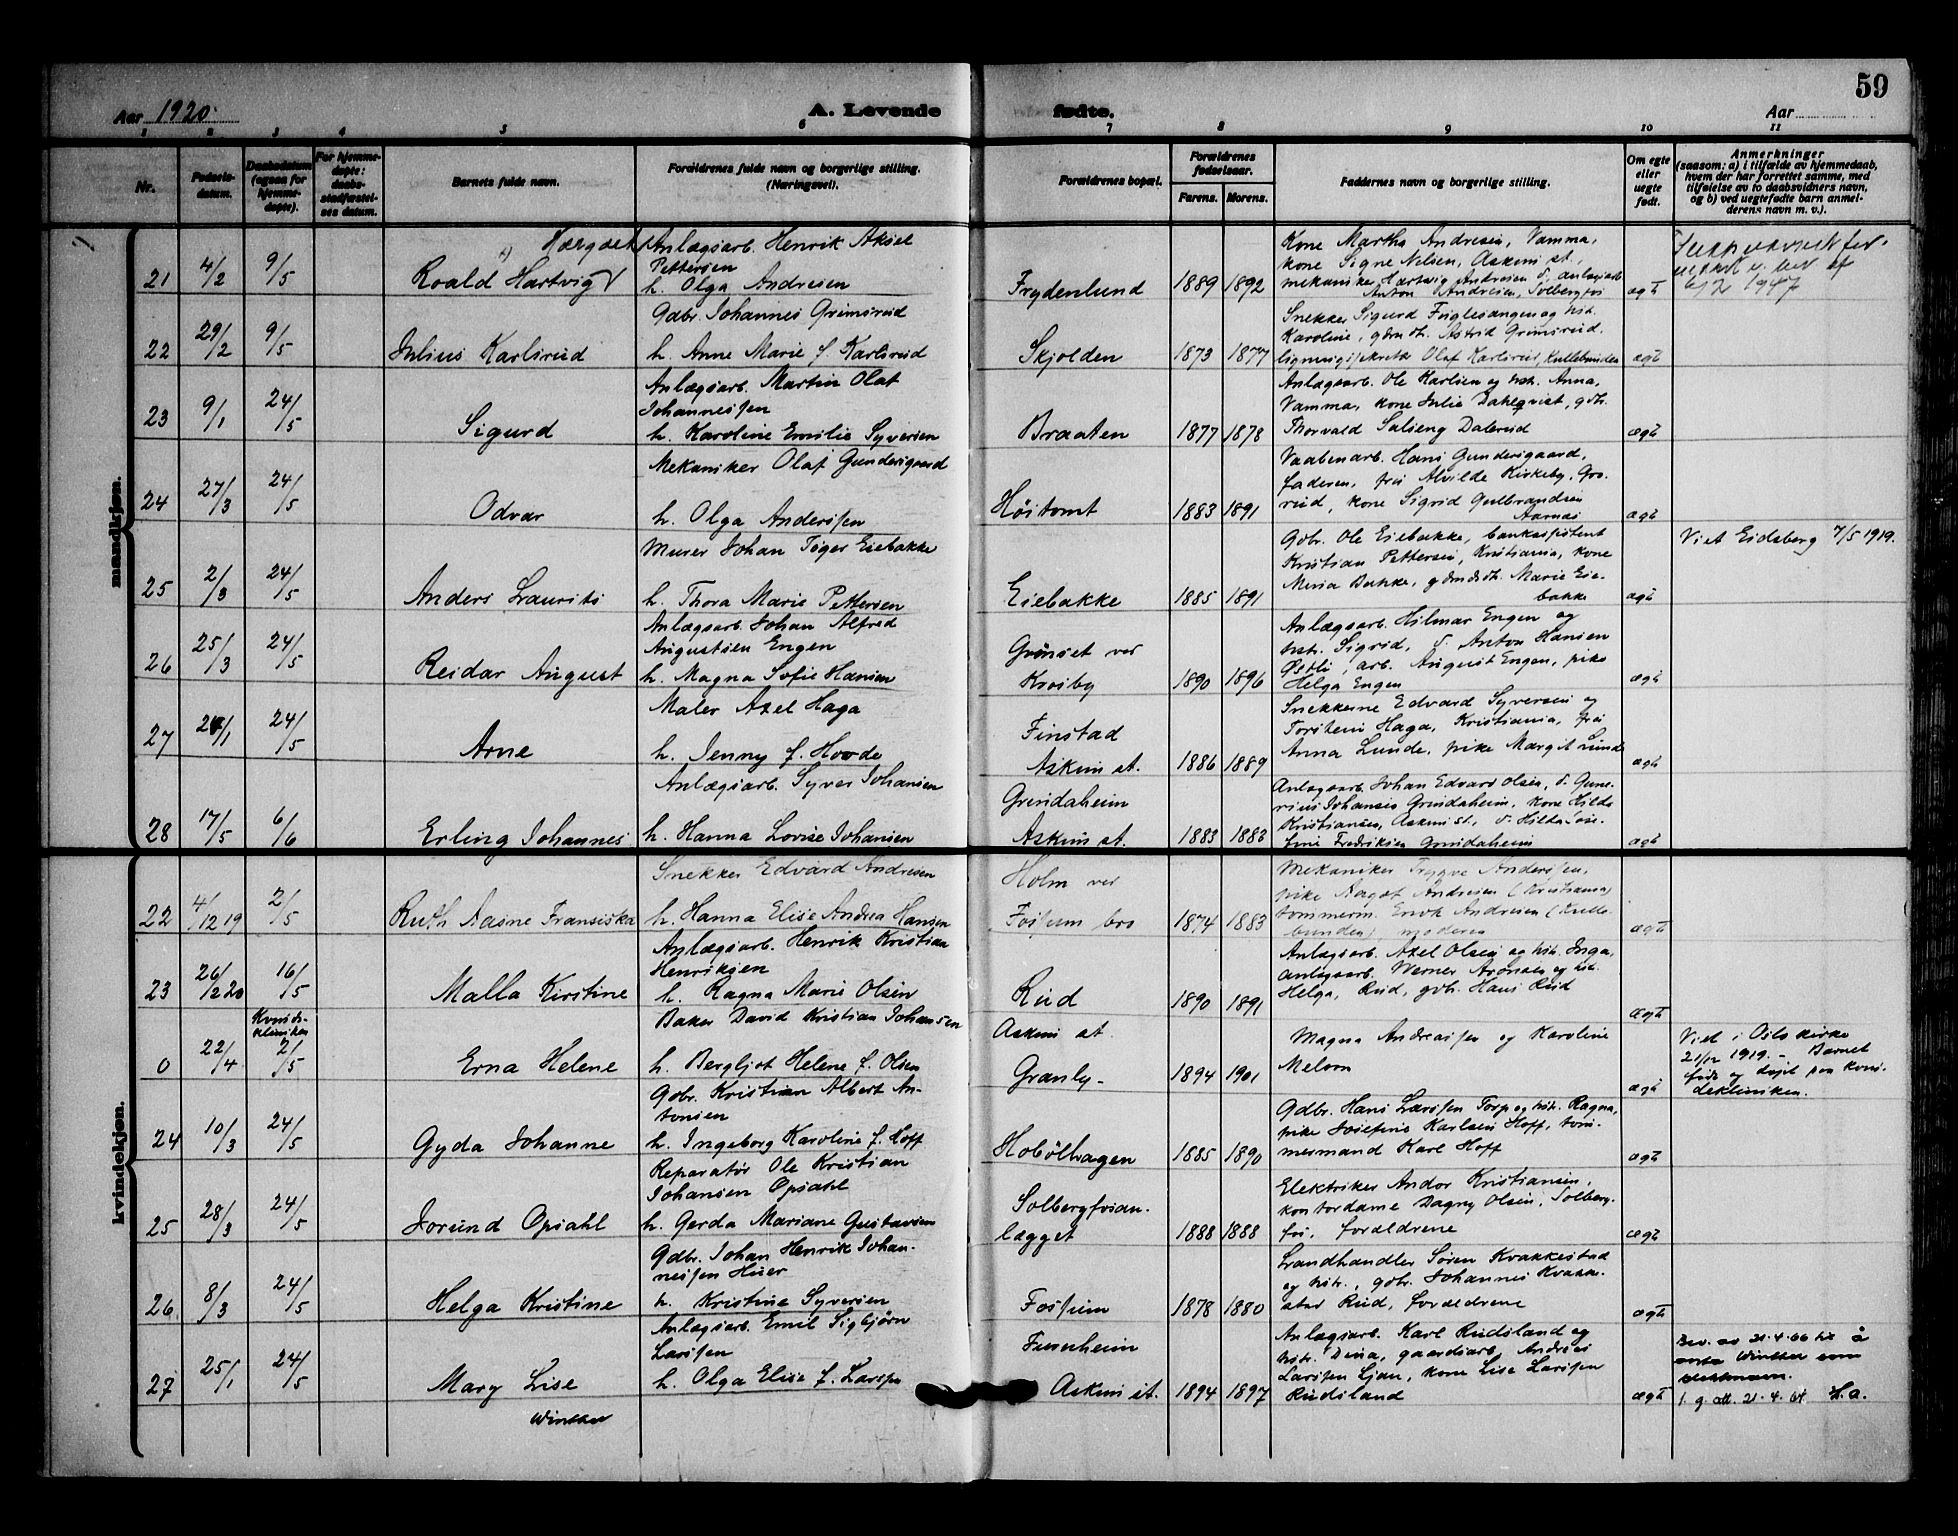 59
Aar 1920.
A. Levende
fødte.
Aar
1 2 3 4 5 6 7 8 9 10 11
Nr.
Fødsels-
datum.
Daabsdatum
(ogsaa for
hjemme-
døpte).
For hjemme-
døpte:
daabs-
stadfæstel-
ses datum.
Barnets fulde navn.
Forældrenes fulde navn og borgerlige stilling.
(Næringsvei).
Forældrenes bopæl.
Forældrenes
fødselsaar.
Farens. Morens.
Faddernes navn og borgerlige stilling.
Om egte
eller
uegte
født.
Anmerkninger
(saasom: a) i tilfælde av hjemmedaab,
hvem der har forrettet samme, med
tilføielse av to daabsvidners navn,
og b) ved uegtefødte barn anmel-
derens navn m. v.).
mandkjøn.
21 4/2 9/5 Roald Hartvig
Anlægsarb. Henrik Aksel
Pettersen
h. Olga Andresen
Frydenlund 1889 1892
Kone Martha Andresen, Vamma,
kone Signe Nilsen, Askim st.,
mekaniker Hartvig Andresen, anlægsarb.
Anton Andresen, Solbergfos
ægte
1947
22 29/2 9/5 Julius Karlsrud
Gdbr. Johannes Grimsrud
h. Anne Marie f. Karlsrud
Skjolden 1873 1877
Snekker Sigurd Fuglesangen og hst.
Karoline, gdmdt. Astrid Grimsrud,
Olaf Karlsrud, Kullebunden
ægte
23 9/1 24/5 Sigurd
Anlægsarb. Martin Olaf
Johannessen
h. Karoline Emilie Syversen
Braaten 1877 1878
Anlægsarb. Ole Karlsen og hst. Anna,
Vamma, kone Julie Dahlqvist,
Thorvald Dalerud
ægte
24 27/3 24/5 Odvar
Mekaniker Olaf Gundersgaard
h. Olga Anderssen
Høitomt 1883 1891
Vaabenarb. Hans Gundersgaard,
faderen, frk Alvilde Kirkeby, Gro-
rud, kone Sigrid Gulbrandsen
Aarnæs
ægte
25 2/3 24/5 Anders Laurits
Murer Johan Eiebakke
h. Thora Marie Pettersen
Eiebakke 1885 1891
Gdbr. Ole Eiebakke, bankassistent
Kristian Pettersen, Kristiania, kone
Bakke, gdmdt. Marie Eie-
bakke
ægte
Viet Eidsberg 7/5 1919.
26 25/3 24/5 Reidar August
Anlægsarb. Johan Alfred
Augustsen Engen
h. Magna Sofie Hansen
Grønset ver
Kroiby 1890 1896
Anlægsarb. Hilmar Engen og
hst. Sigrid, Anton Hansen
Østli, arb. August Engen, pike
Helga Engen
ægte
27 24/5 Arne
Maler Axel Haga
h. Jenny f. Hovde
Finstad
Askim st. 1886 1889
Snekkerne Edvard Syversen og
Torstein Haga, Kristiania, frk
Anna Lunde, pike Margit Lunde
ægte
28 17/5 6/6 Erling Johannes
Anlægsarb. Syver Johansen
h. Hanna Lovise Johansen
Grindaheim
Askim st. 1883 1883
Anlægsarb. Johan Edvard Olsen, Gune-
rius Johansen Grindaheim, kone Hilda
Kristiansen, Askim st., Hilda Jose-
fine Fredriksen Grindaheim
ægte
kvindekjøn.
22 4/12 19 2/5 Ruth Aasne Fransiska
Snekker Edvard Andresen
h. Hanna Elise Andrea Hansen
Holm ver
Fossum bro 1874 1883
Mekaniker Trygve Anderssen,
pike Aagot Andresen (Kristiania)
tømmerm. Andresen (Kulle-
bunden) moderen
ægte
23 26/2 20 16/5 Malla Kirstine
Anlægsarb. Henrik Kristian
Henriksen
h. Ragna Marie Olsen
Rud 1890 1891
Anlægsarb. Axel Olsen og hst. Inga,
anlægsarb. Werner Aronsen og hst.
Helga, Rud, gdbr. Hans Rud
ægte
0 22/4 Kvinde-
kliniken
2/5 Erna Helene
Baker David Kristian Johansen
h. Bergljot Helene f. Olsen
Askim st.
Granly- 1894 1901
Magna Andreassen og Karoline
Melom
ægte
Viet i Oslo kirke
21/12 1919. - Barnet
født og døpt paa kvin-
dekliniken.
24 10/3 24/5 Gyda Johanne
Gdbr. Kristian Albert An-
tonsen
h. Ingeborg Karoline f. Hoff
Hobølhagen 1885 1890
Gdbr. Hans Larssen Torp og hst. Ragna,
pike Josefine Karlsen Hoff, tøm-
mermand Karl Hoff
ægte
25 28/3 24/5 Jorund Opsahl
Reparatør Ole Kristian
Johansen Opsahl
h. Gerda Mariane Gustavsen
Solbergfosan-
lægget 1888 1888
Elektriker Andor Kristiansen,
kontordame Dagny Olsen, Solberg-
fos, forældrene
ægte
26 8/3 24/5 Helga Kristine
Gdbr. Johan Henrik Johan-
nessen Huer
h. Kristine Syversen
Fossum 1878 1880
Landhandler Søren Kvakkestad
og hst., gdbr. Johannes Kvakke-
stad Rud, forældrene
ægte
27 25/1 24/5 Mary Lise
Winther
Anlægsarb. Emil Sigbjørn
Larssen
h. Olga Elise f. Larssen
Furuheim
Askim st. 1894 1897
Anlægsarb. Karl Rudsland og
hst. Dina, gaardsarb. Andreas
Larssen Ljan, kone Lise Larssen
Rudsland
ægte
Bev. av 21.4.66 til å
anta Winther som
slektsnavn.